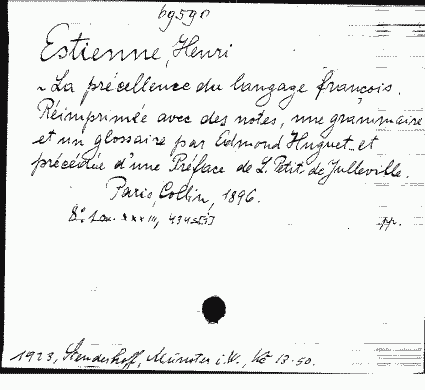 bg590
Estienne, Henri
~ La précellence du langage françois.
Réimprimée avec des notes, une grammaire
et un glossaire par Edmond Huguet et
précédée d'une Préface de L. Petit de Julleville.
Paris, Collin, 1896.
8°. XXXIII, 434 s[i] pp.
1923, Stenderhoff, Münster i.W., Kč 13·50.